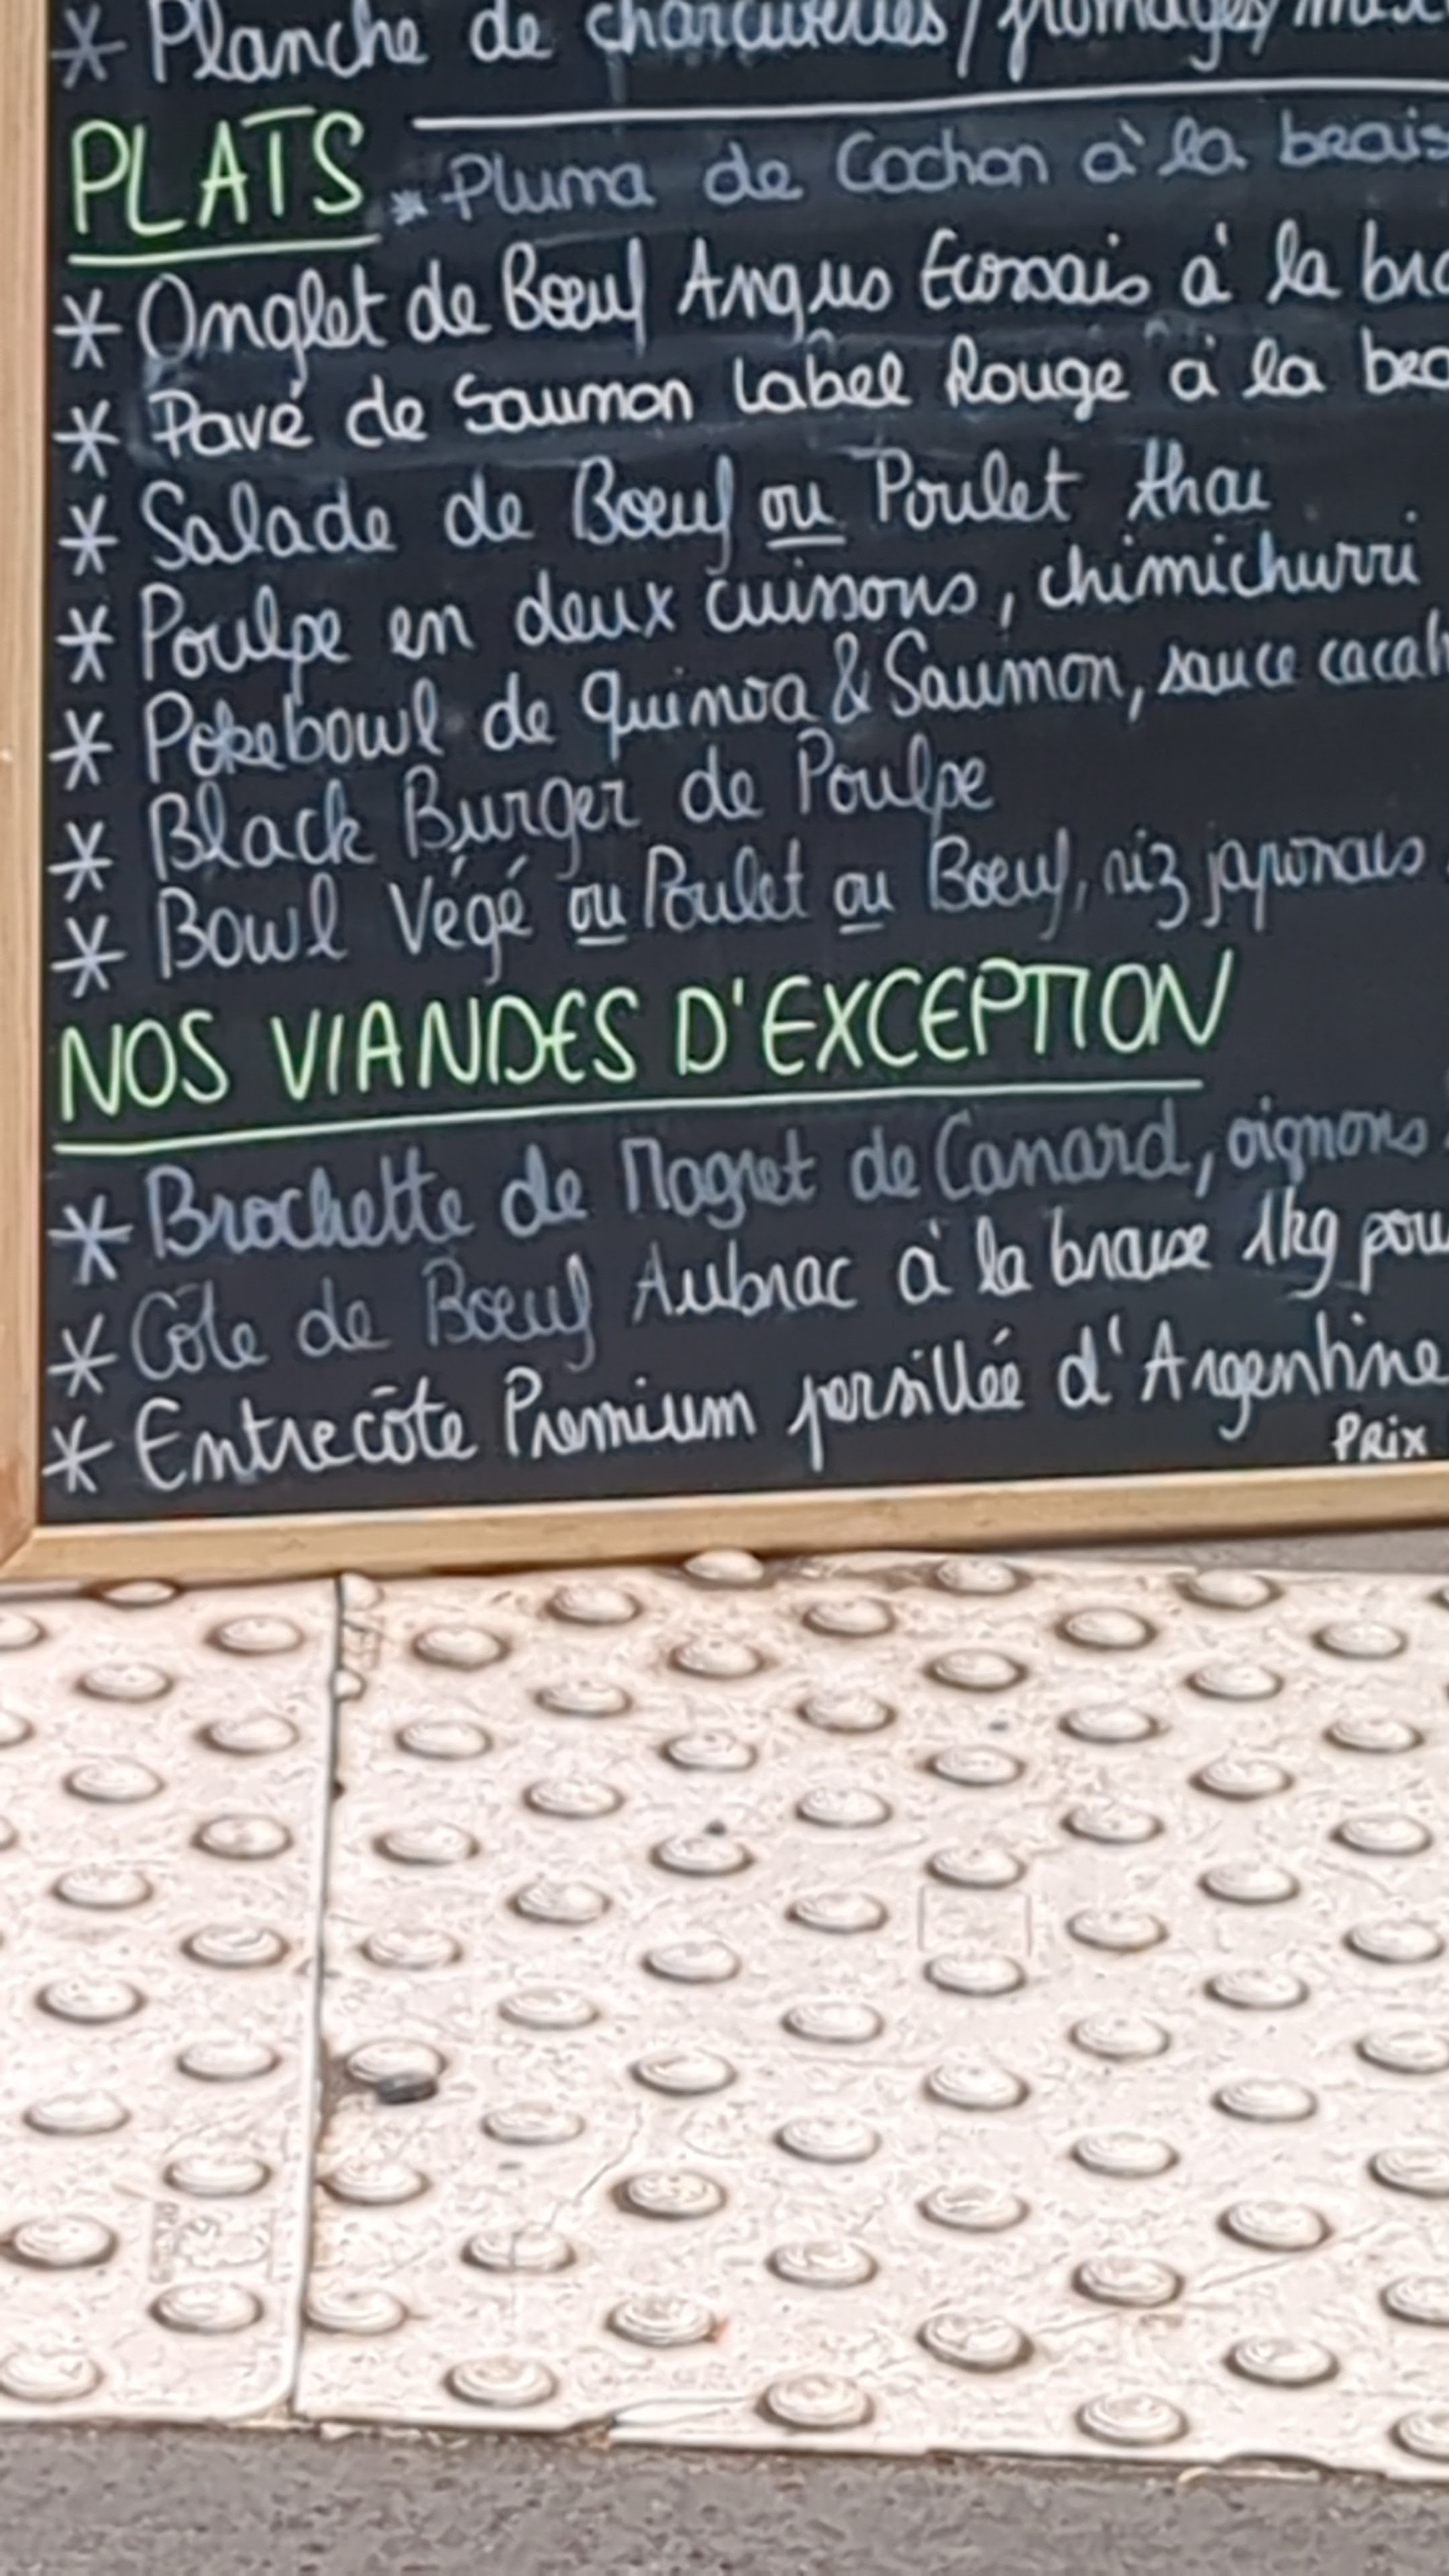 * Planche de charcuteries/fromages/mixt
PLATS * Pluma de Cochon à la brais
* Onglet de Bœuf Angus Ecossais à la bra
* Pavé de Saumon Label Rouge à la bra
* Salade de Bœuf ou Poulet thaï
* Poulpe en deux cuissons, chimichurri
* Pokebowl de quinoa & Saumon, sauce cacah
* Black Burger de Poulpe
* Bowl Végé ou Poulet ou Bœuf, riz japonais
NOS VIANDES D'EXCEPTION
* Brochette de Magret de Canard, oignons
* Côte de Bœuf Aubrac à la braise 1kg pou
* Entrecôte Premium persillée d'Argentine
PRix